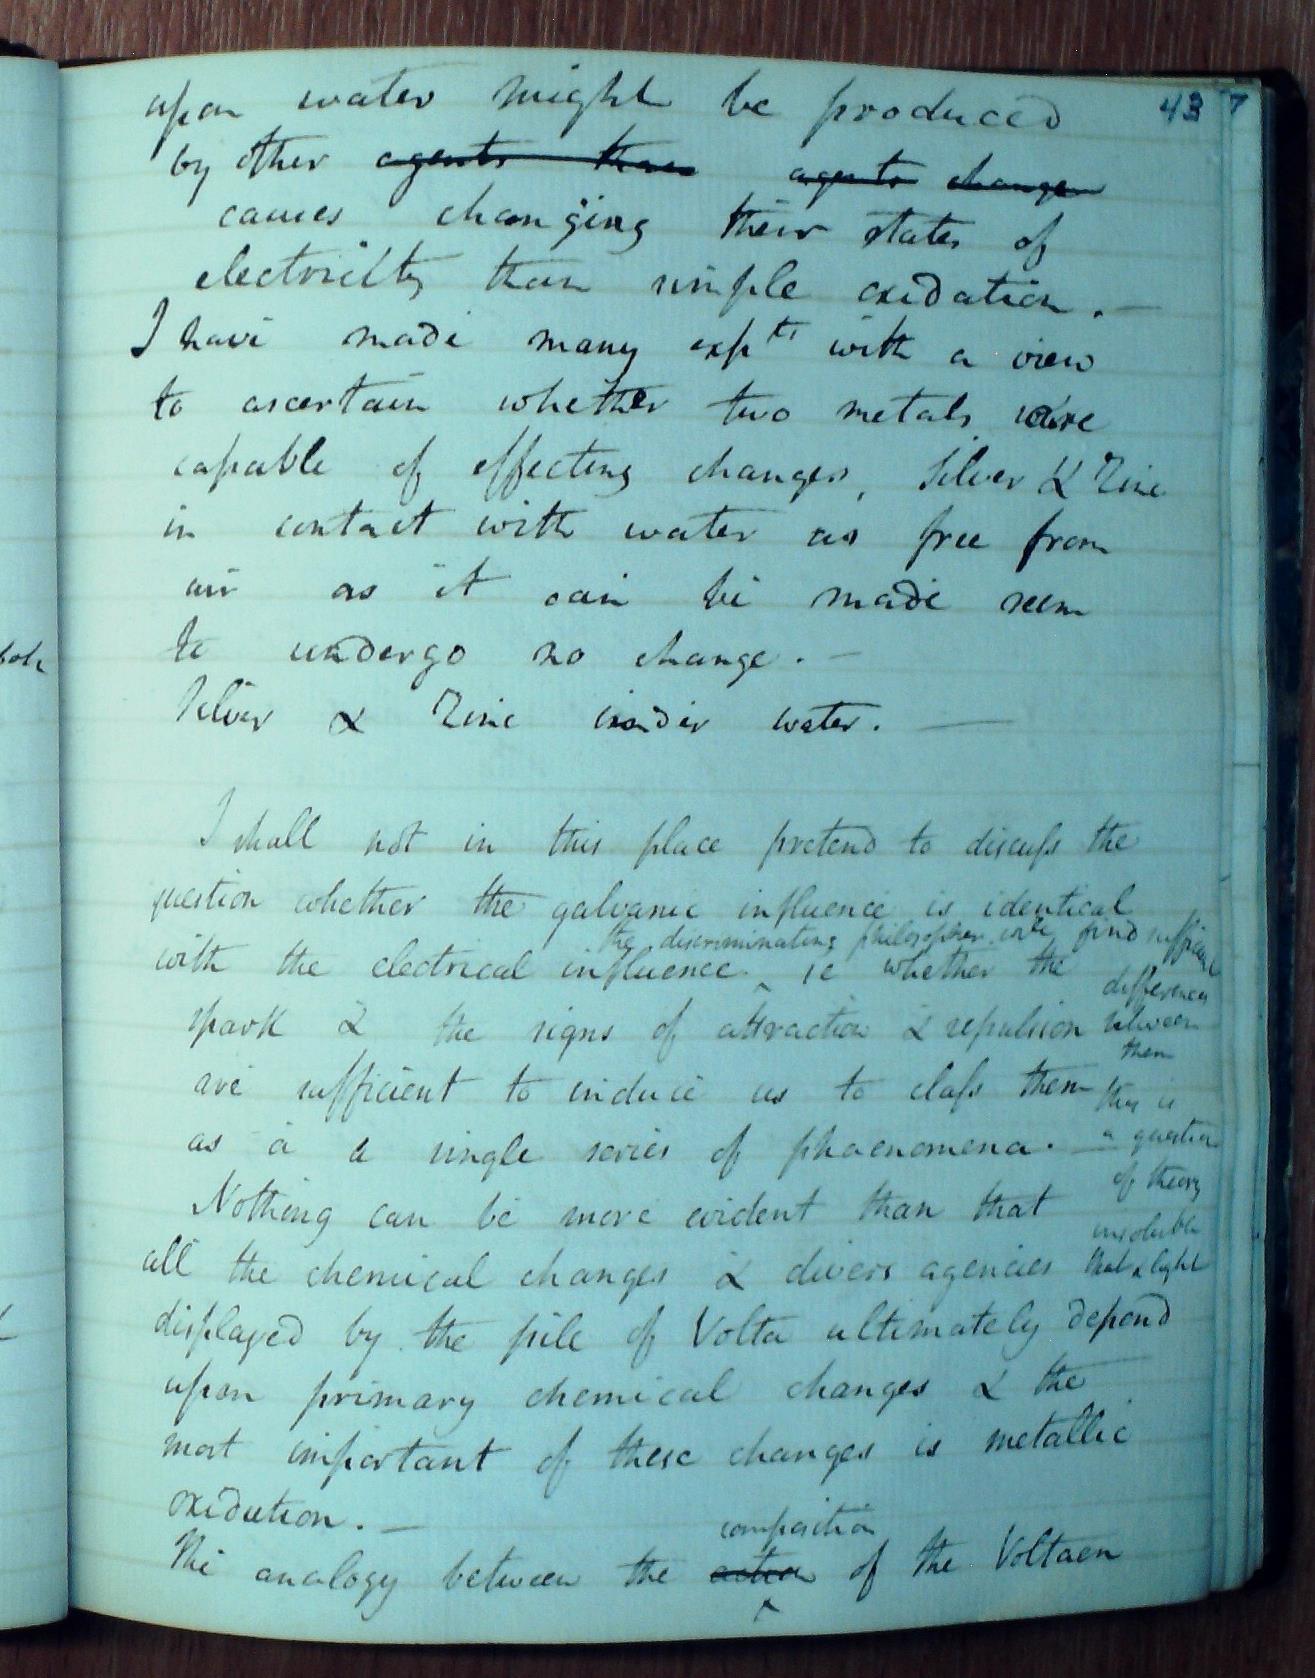 43 7
upon water might be produced
by other agents than agents change
causes changing their states of
electricity than simple oxidation. —
I have made many expts with a view
to ascertain whether two metals were
capable of effecting changes, Silver & Zinc
in contact with water as free from
air as it can be made seem
to undergo no change. —
Silver & Zinc under water. —
I shall not in this place pretend to discuss the
question whether the galvanic influence is identical
the discriminating philosopher will find sufficient
with the electrical influence. ie whether the
differences
spark & the signs of attraction & repulsion
between
them
are sufficient to induce us to class them
this is
as a a single series of phaenomena. —
a question
of theory
Nothing can be more evident than that
insoluble
all the chemical changes & divers agencies
that & light
displayed by the pile of Volta ultimately depend
upon primary chemical changes & the
most important of these changes is metallic
oxidation. —
composition
The analogy between the action of the Voltaen